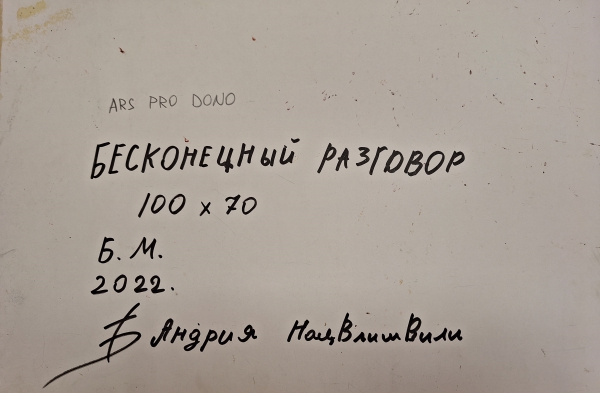 ARS PRO DONO
БЕСКОНЕЦНЫЙ РАЗГОВОР
100 x 70
Б. М.
2022.
Андрия НацВлишВили